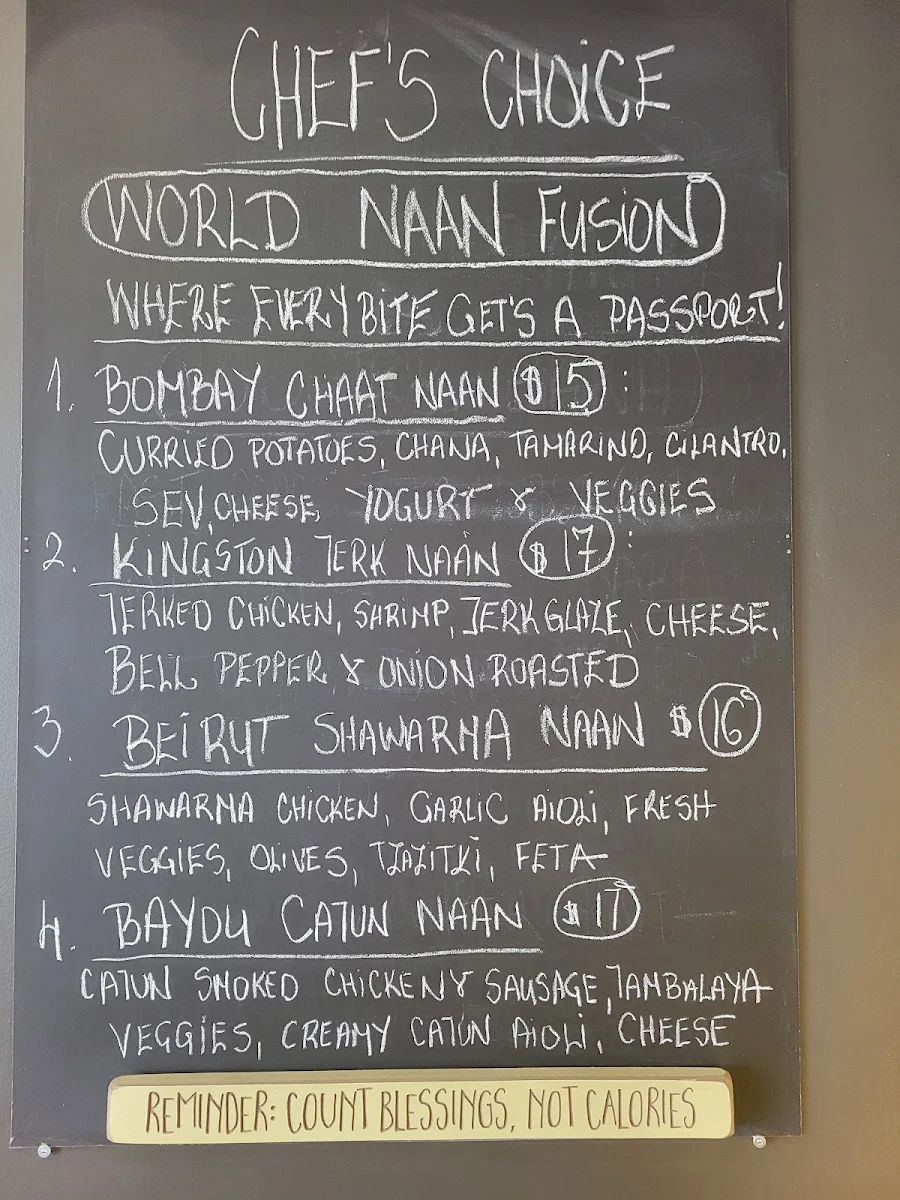 CHEF'S CHOICE
WORLD NAAN FUSION
WHERE EVERY BITE GET'S A PASSPORT!
1. BOMBAY CHAAT NAAN $15 :
CURRIED POTATOES, CHANA, TAMARIND, CILANTRO,
SEV, CHEESE, YOGURT & VEGGIES
2. KINGSTON JERK NAAN $17 :
JERKED CHICKEN, SHRIMP, JERK GLAZE, CHEESE,
BELL PEPPER & ONION ROASTED
3. BEIRUT SHAWARMA NAAN $16
SHAWARMA CHICKEN, GARLIC AIOLI, FRESH
VEGGIES, OLIVES, TZAZITKI, FETA
4. BAYOU CAJUN NAAN $17
CAJUN SMOKED CHICKEN & SAUSAGE, JAMBALAYA
VEGGIES, CREAMY CAJUN AIOLI, CHEESE
REMINDER: COUNT BLESSINGS, NOT CALORIES